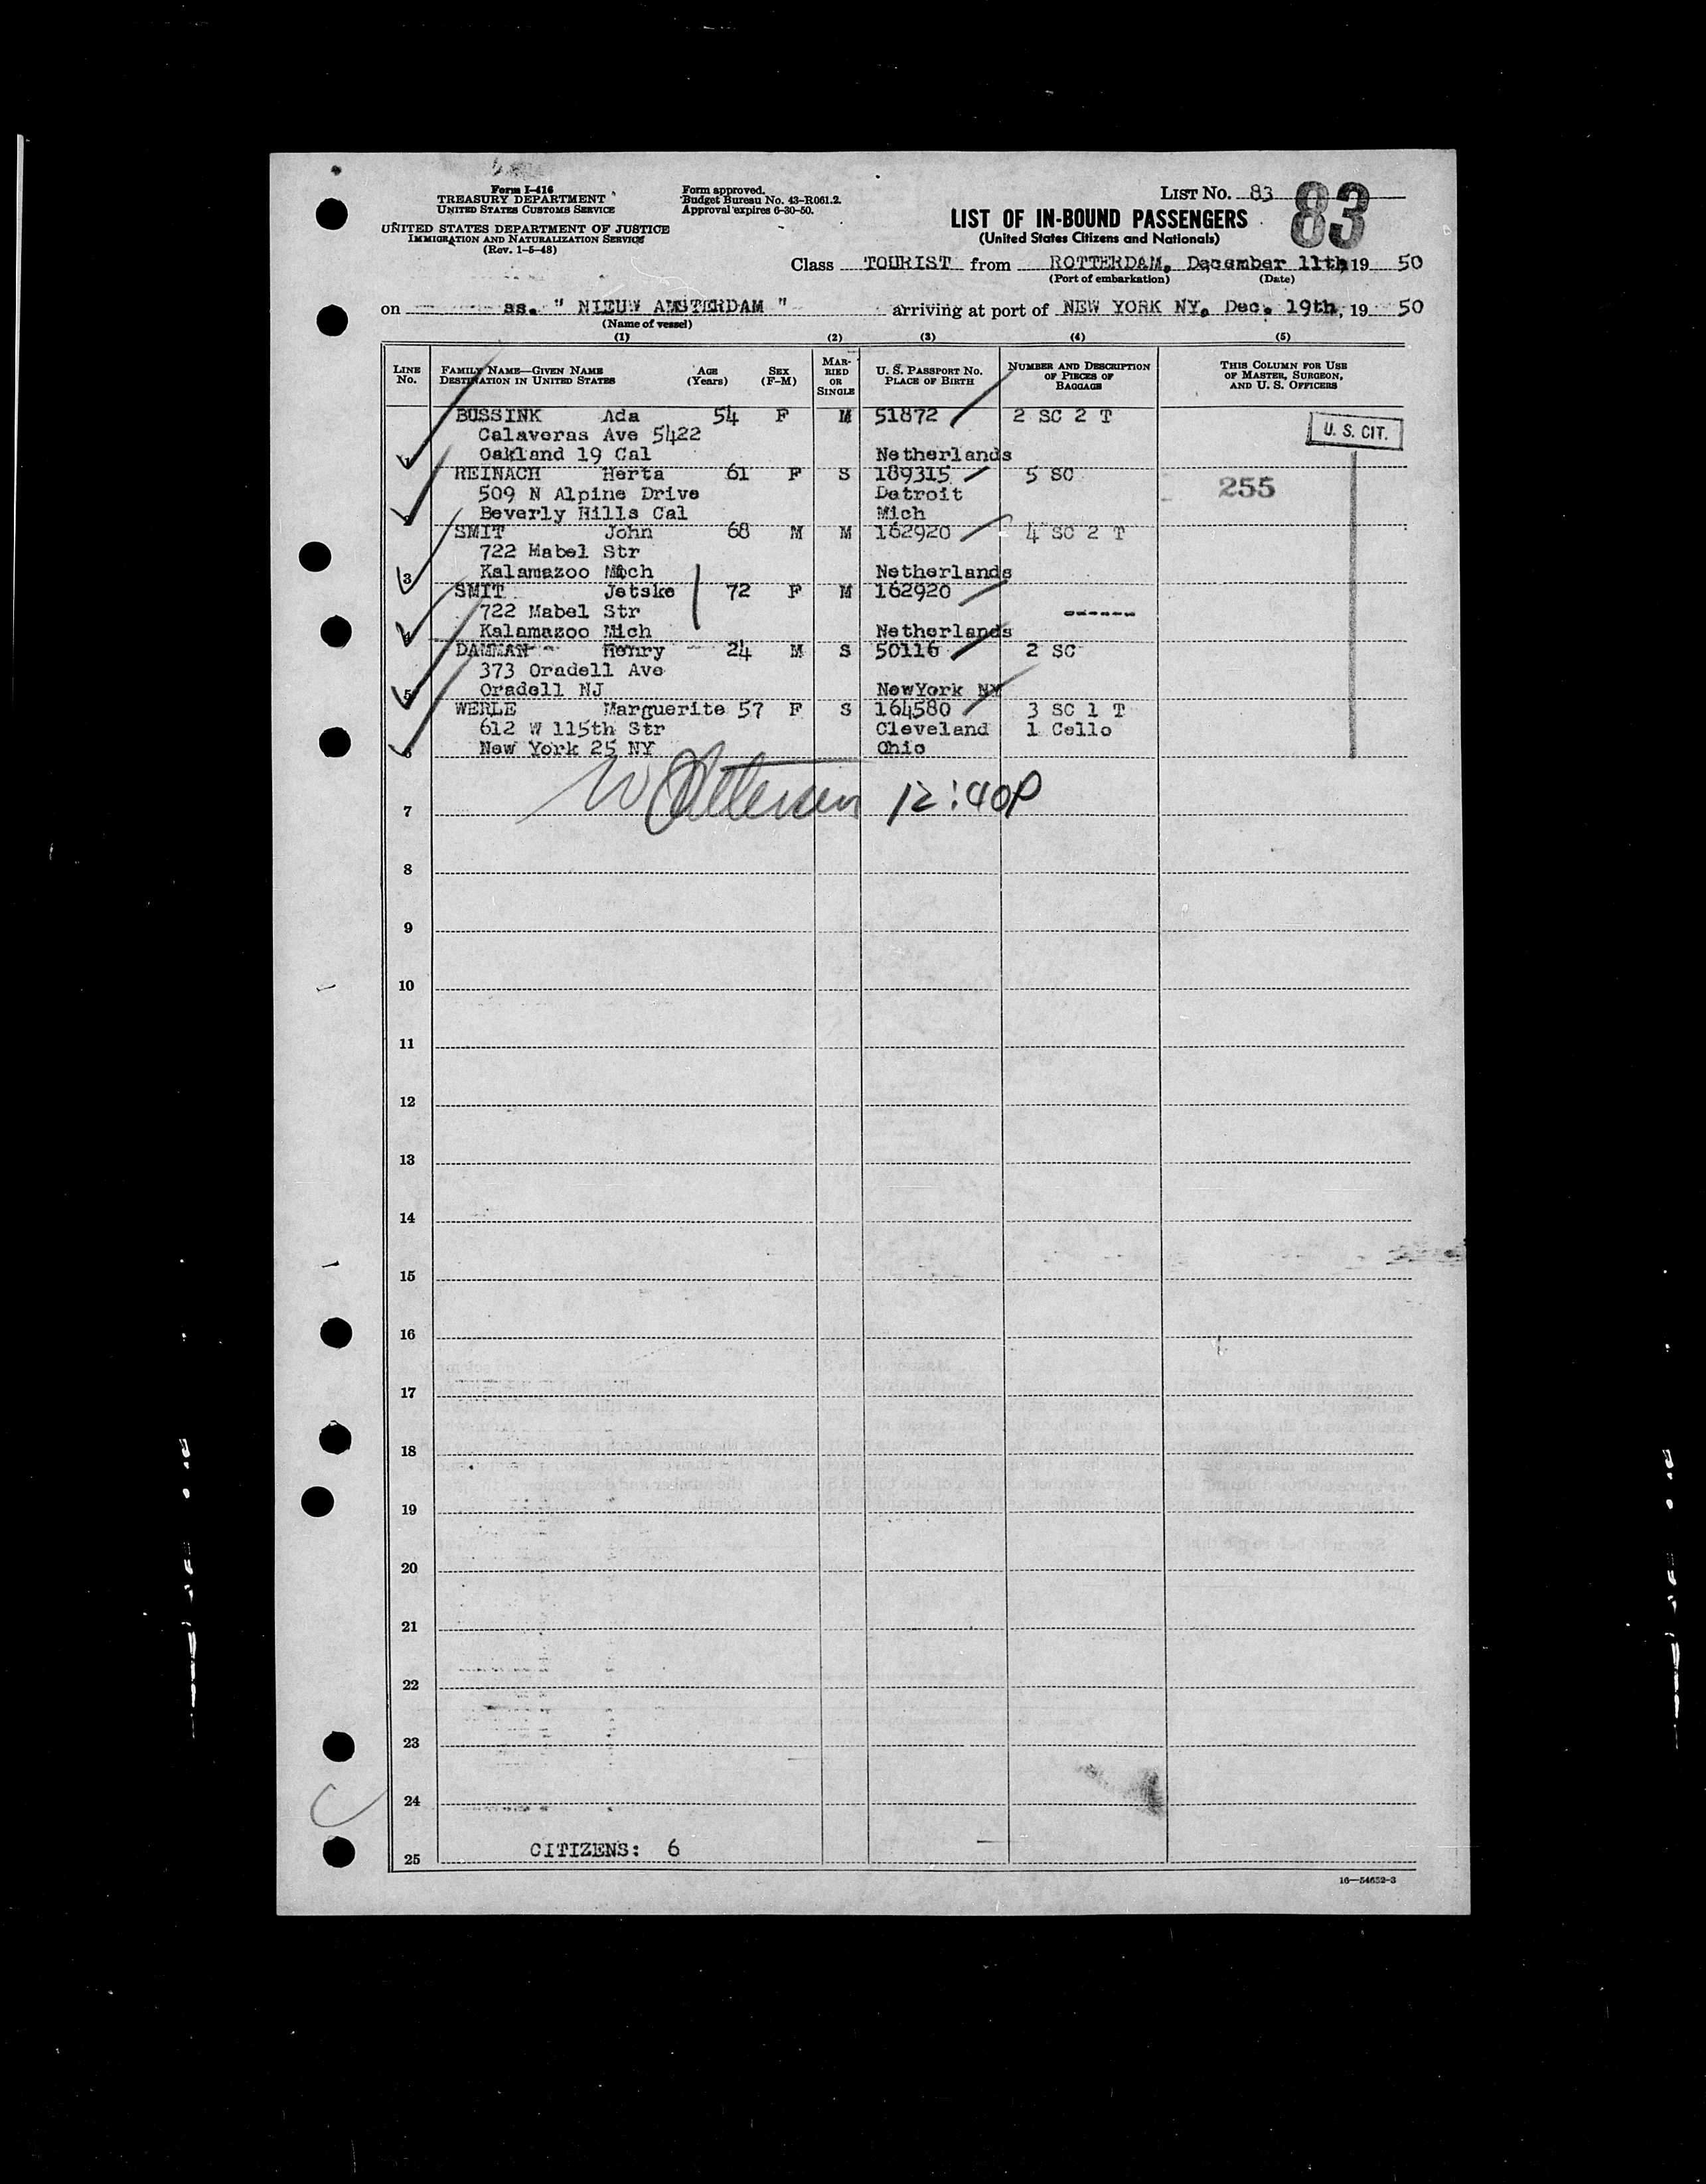 Form I-416
TREASURY DEPARTMENT
UNITED STATES CUSTOMS SERVICE
UNITED STATES DEPARTMENT OF JUSTICE
IMMIGRATION AND NATURALIZATION SERVICE
(Rev. 1-5-48)
Form approved.
Budget Bureau No. 43-R061.2.
Approval expires 6-30-50.
LIST No. 83 83
LIST OF IN-BOUND PASSENGERS
(United States Citizens and Nationals)
Class TOURIST from ROTTERDAM, December 11th, 19 50
(Port of embarkation) (Date)
on ss. " NIEUW AMSTERDAM " arriving at port of NEW YORK NY, Dec. 19th, 19 50
(Name of vessel)
(1) (2) (3) (4) (5)
LINE No. FAMILY NAME—GIVEN NAME DESTINATION IN UNITED STATES AGE (Years) SEX (F-M) MARRIED OR SINGLE U. S. PASSPORT No. PLACE OF BIRTH NUMBER AND DESCRIPTION OF PIECES OF BAGGAGE THIS COLUMN FOR USE OF MASTER, SURGEON, AND U. S. OFFICERS
BUSSINK Ada 54 F M 51872 2 SC 2 T
Calaveras Ave 5422 U. S. CIT.
1 Oakland 19 Cal Netherlands
REINACH Herta 61 F S 189315 5 SC
509 N Alpine Drive Detroit 255
2 Beverly Hills Cal Mich
SMIT John 68 M M 162920 4 SC 2 T
722 Mabel Str
3 Kalamazoo Mich Netherlands
SMIT Jetske 72 F M 162920
722 Mabel Str ------
4 Kalamazoo Mich Netherlands
DAMMAN Henry 24 M S 50116 2 SC
373 Oradell Ave
5 Oradell NJ NewYork NY
WERLE Marguerite 57 F S 164580 3 SC 1 T
612 W 115th Str Cleveland 1 Cello
6 New York 25 NY Ohio
12:40P
7
8
9
10
11
12
13
14
15
16
17
18
19
20
21
22
23
24
25 CITIZENS: 6
16—54652-3